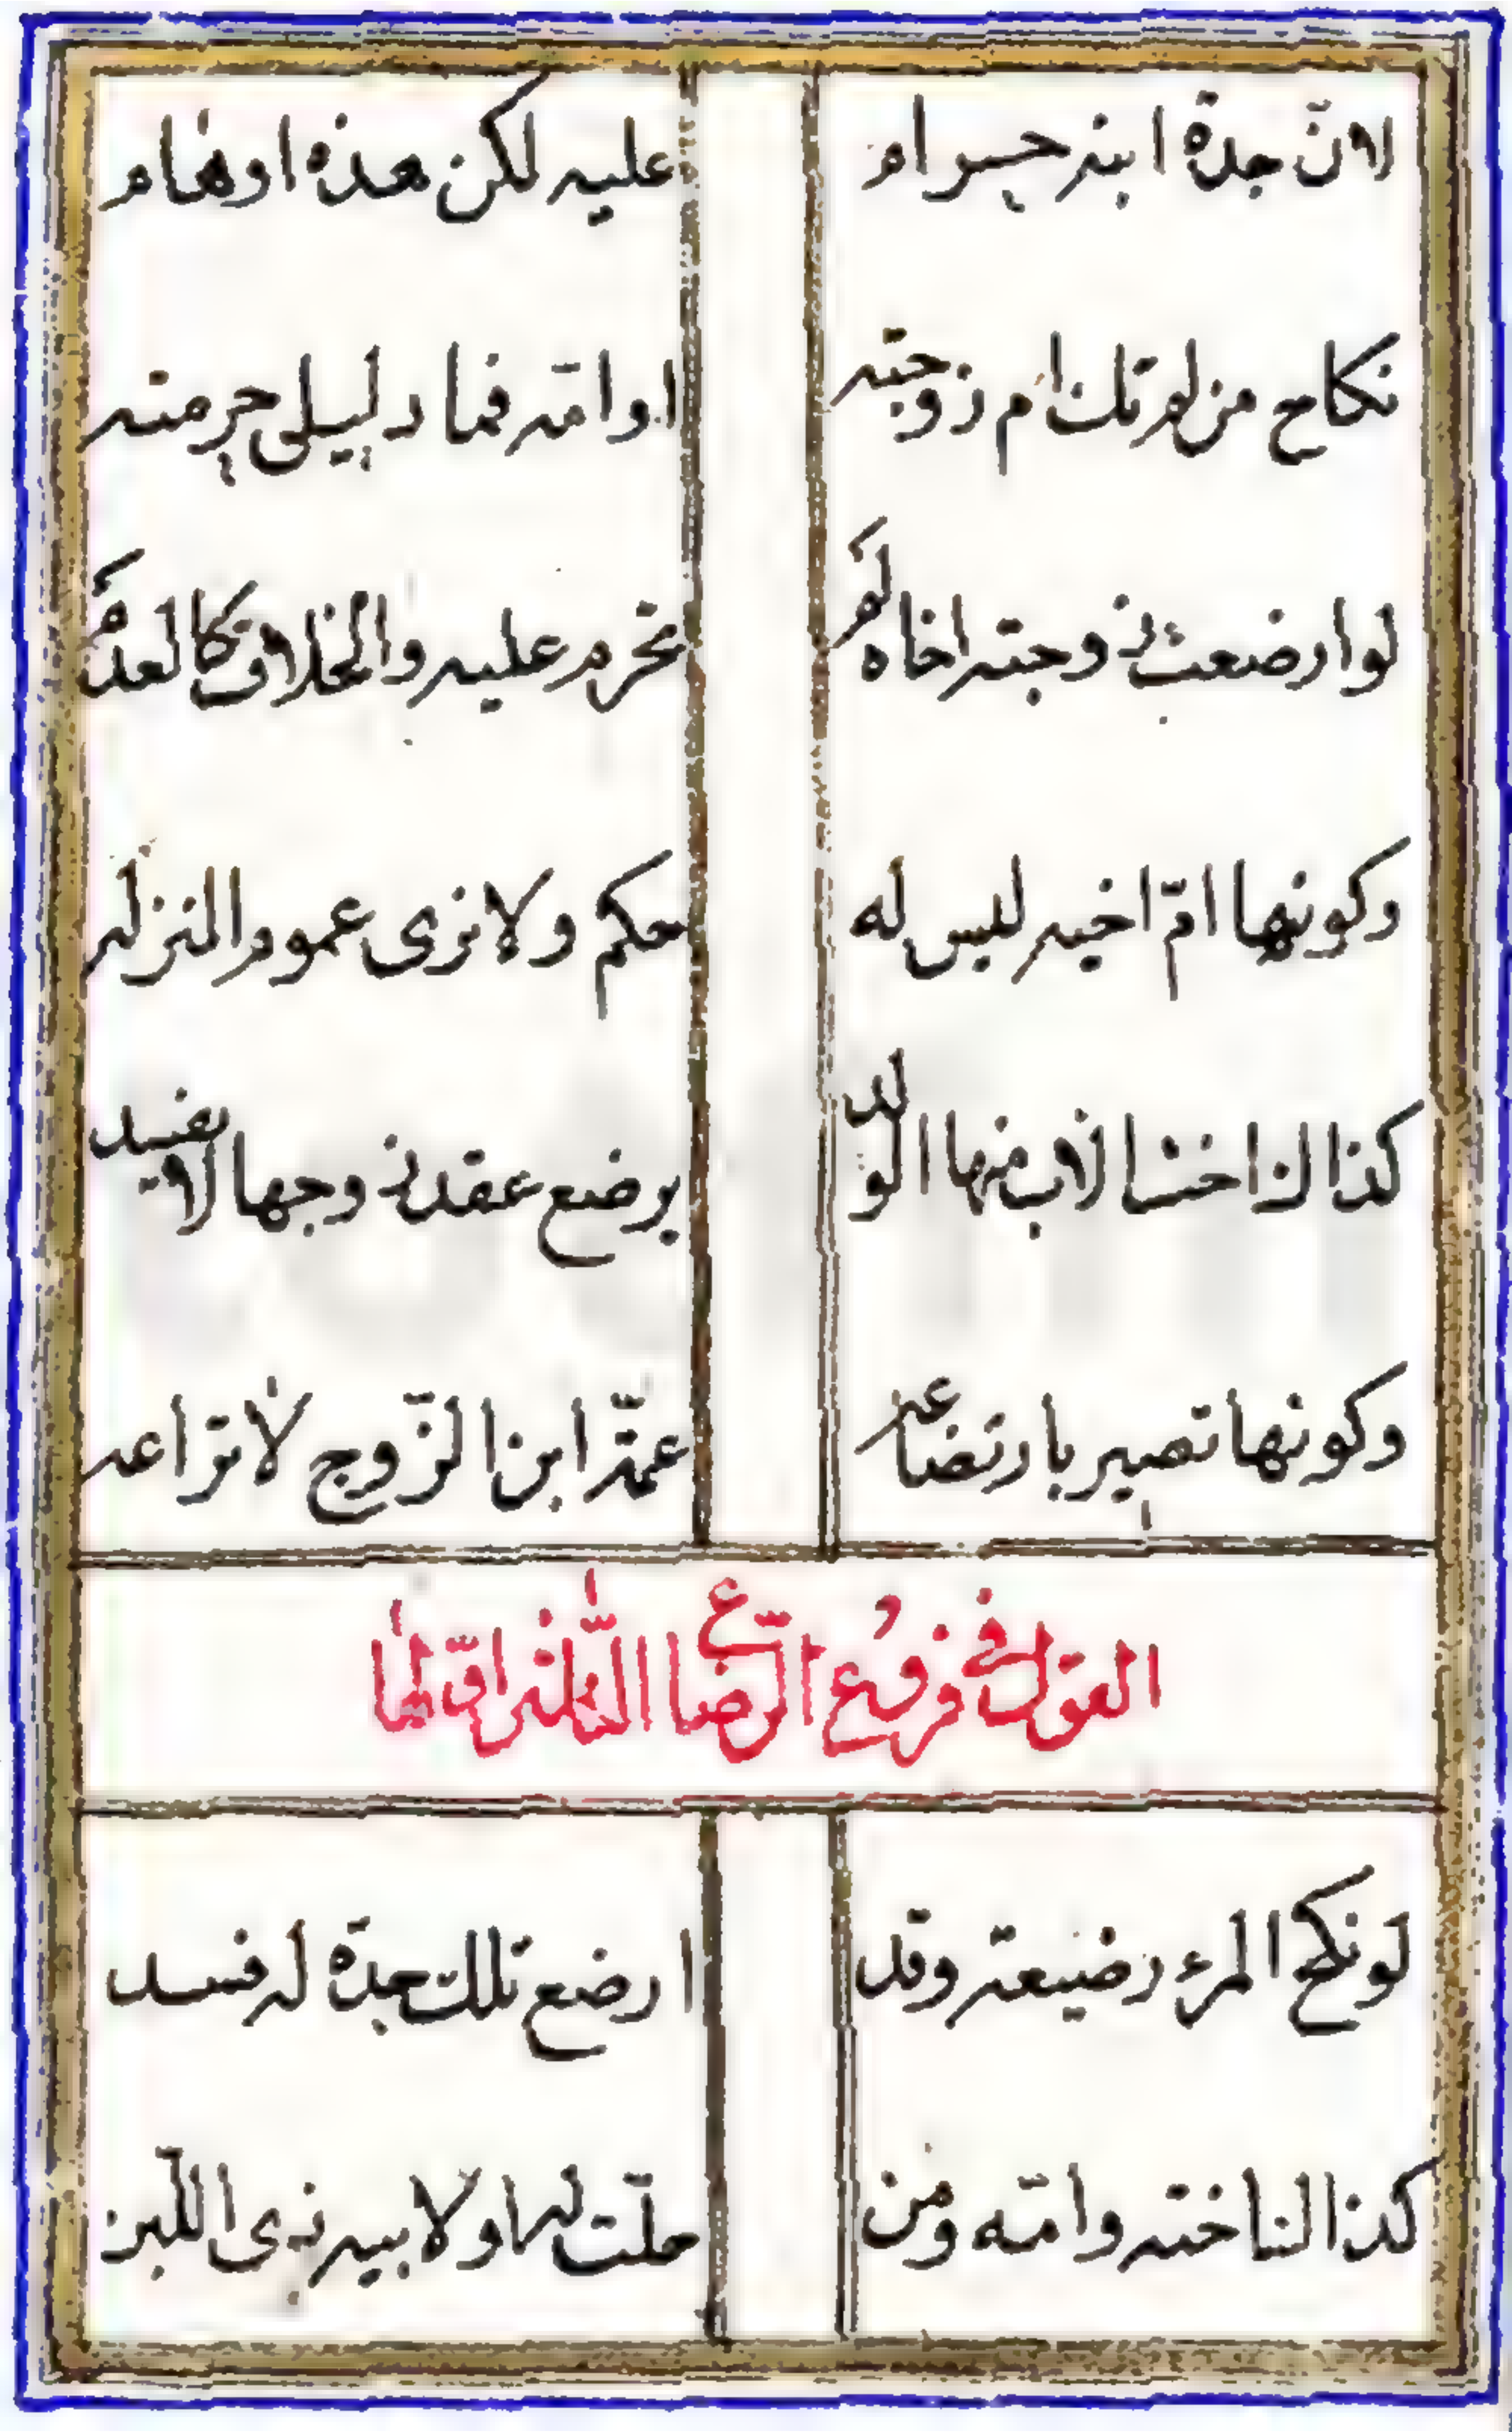 لانّ جدّة ابنه حرام عليه لكن هذه اوهام
نكاح من لم تك ام زوجته او امّه فما دليل حرمته
لو ارضعت زوجته اخاه لم تحرم عليه والخلاف كالعدم
وكونها امّ اخيه ليس له حكم ولا نرى عموم المنزله
كذاك اختا لاب منها الولد يرضع عقد زوجها لا يفسد
وكونها تصير بارتضاعه عمّة ابن الزّوج لا تراعه
القول في فروع الرّضاع
لو نكح المرء رضيعة وقد ارضع تلك جدّة له فسد
كذا اخته وامّه ومن حلّت له او لابيه ذي اللّبن